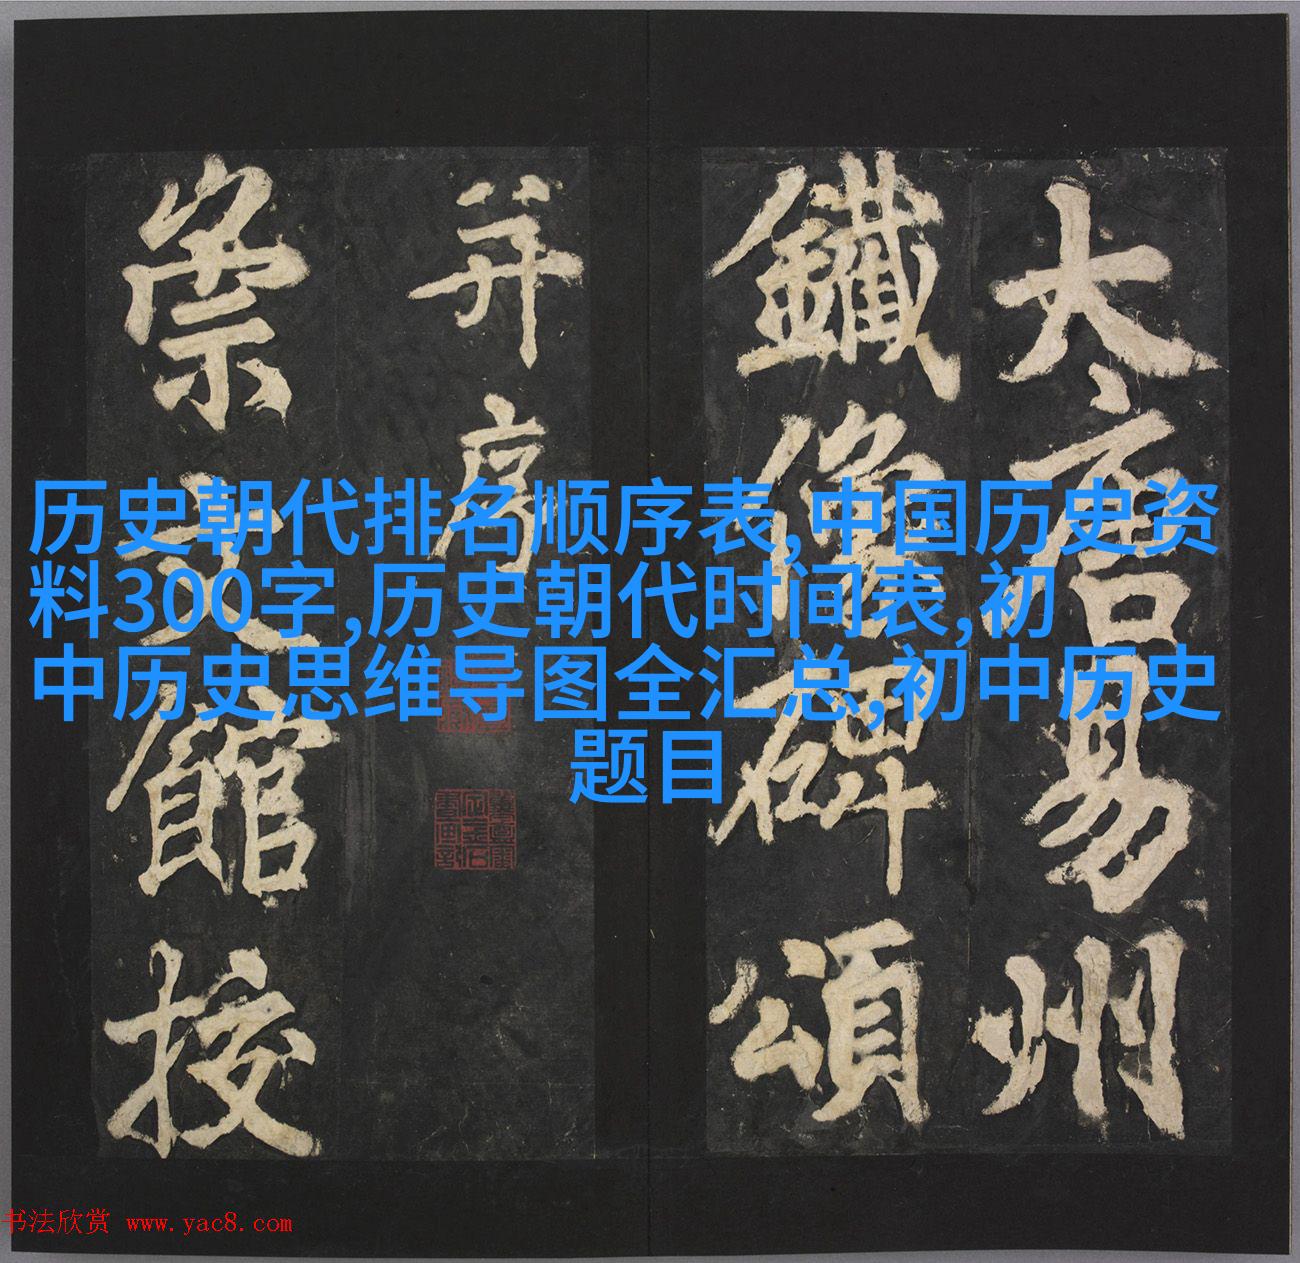 大唐易州
鐵像碑頌
并序
崇文館挍
历史朝代排名顺序表,中国历史资
料300字,历史朝代时间表,初
中历史思维导图全汇总,初中历史
题目
书法欣赏 www.yac8.com